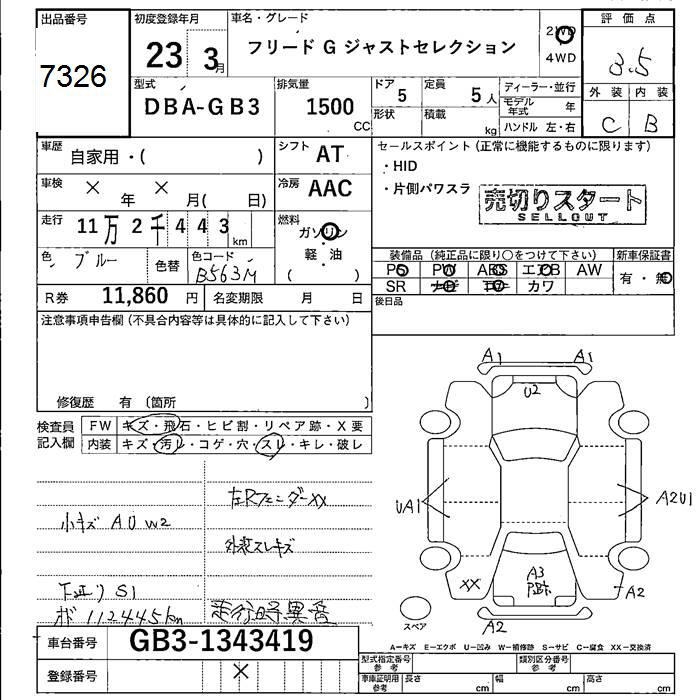 出品番号
7326
初度登録年月
23 3月
車名・グレード
フリード G ジャストセレクション
2WD
4WD
評価点
3.5
外装 内装
C B
型式
DBA-GB3
排気量
1500
CC
ドア
5
定員
5人
形状
積載
kg
ディーラー・並行
モデル年式 年
ハンドル 左・右
車歴
自家用・( )
シフト
AT
車検
× 年 × 月( 日)
冷房
AAC
走行
11万2千443km
燃料
ガソリン
軽・油
( )
色
ブルー
色替
色コード
B563M
R券 11,860 円
名変期限 月 日
セールスポイント (正常に機能するものに限ります)
・HID
・片側パワスラ
売切りスタート
SELLOUT
装備品 (純正品に限り○をつけて下さい)
新車保証書
PS PW ABS エアB AW
有・無
SR ナビ カワ
後日品
注意事項申告欄 (不具合内容等は具体的に記入して下さい)
修復歴 有 (箇所 )
検査員記入欄
FW キズ・飛石・ヒビ割・リペア跡・X要
内装 キズ・汚レ・コゲ・穴・スレ・キレ・破レ
小キズ AU W2
左Rフェンダーxx
外装スレキズ
下廻り S1
112445km
走行時異音
A1 A1
U2
UA1
A2U1
XX
A3
A2
A2
スペア
A-キズ E-エクボ U-凹み W-補修跡 S-サビ C-腐食 XX-交換済
車台番号
GB3-1343419
登録番号
×
型式指定番号
参考
類別区分番号
参考
車庫証明用
参考
長さ cm
幅 cm
高さ cm